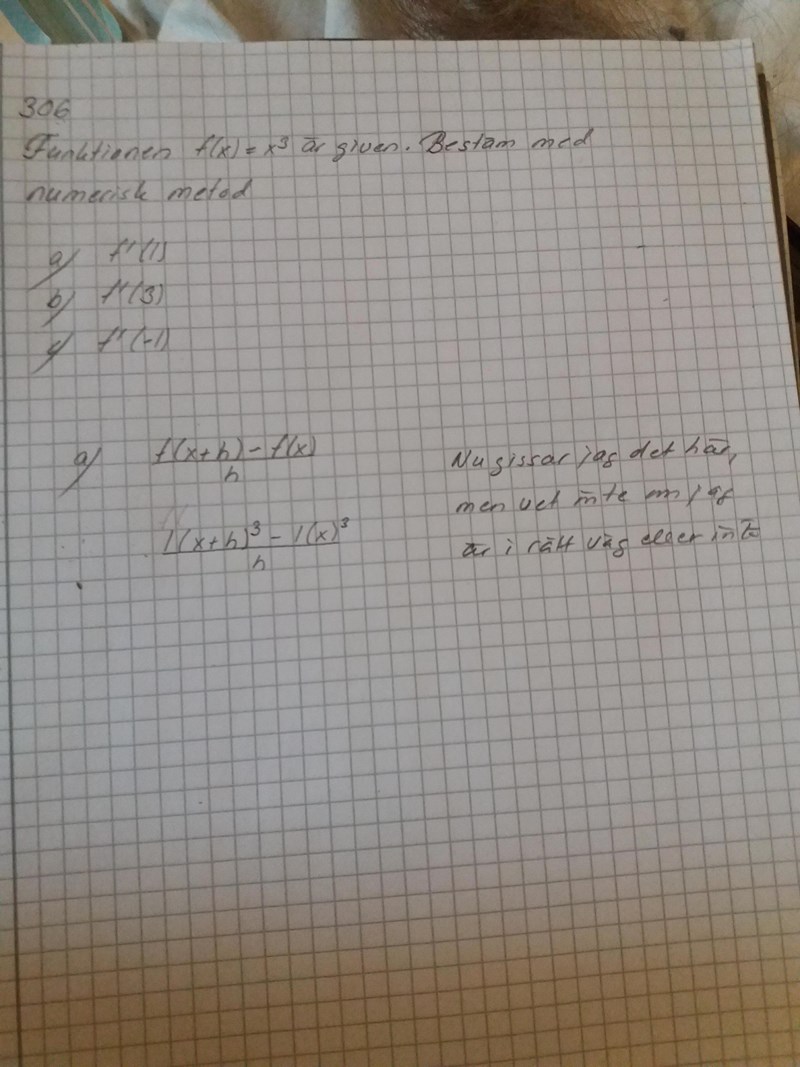 306
Funktionen f(x) = x³ är given. Bestäm med
numerisk metod
a) f'(1)
b) f'(3)
c) f'(-1)
a) f(x+h) - f(x)
h
1(x+h)³ - 1(x)³
h
Nu gissar jag det här,
men vet inte om jag
är i rätt väg eller inte